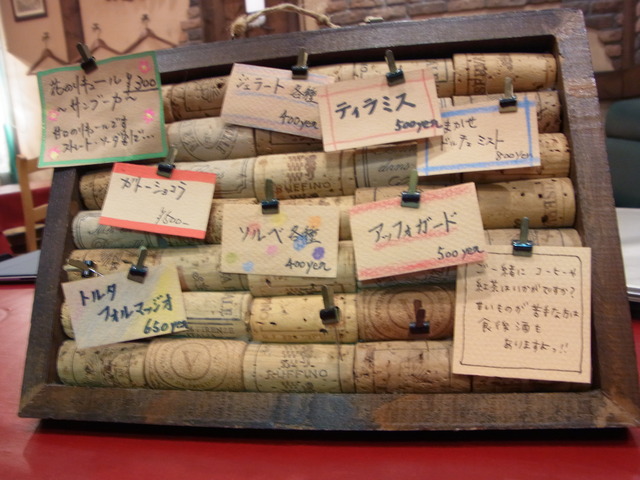 花のリキュール ¥300
〜サンブーカ〜
ストレート・ソーダ割で…
ジェラート各種
400yen
ティラミス
500yen
おまかせ
ドルチェミスト
800yen
ガトーショコラ
¥500-
ソルベ各種
400yen
アッフォガード
500yen
トルタ
フォルマッジオ
650yen
ご一緒にコーヒーや
紅茶はいかがですか?
甘いものが苦手な方は
食後酒も
ありますよっ!!
RUFFINO
RUFFINO